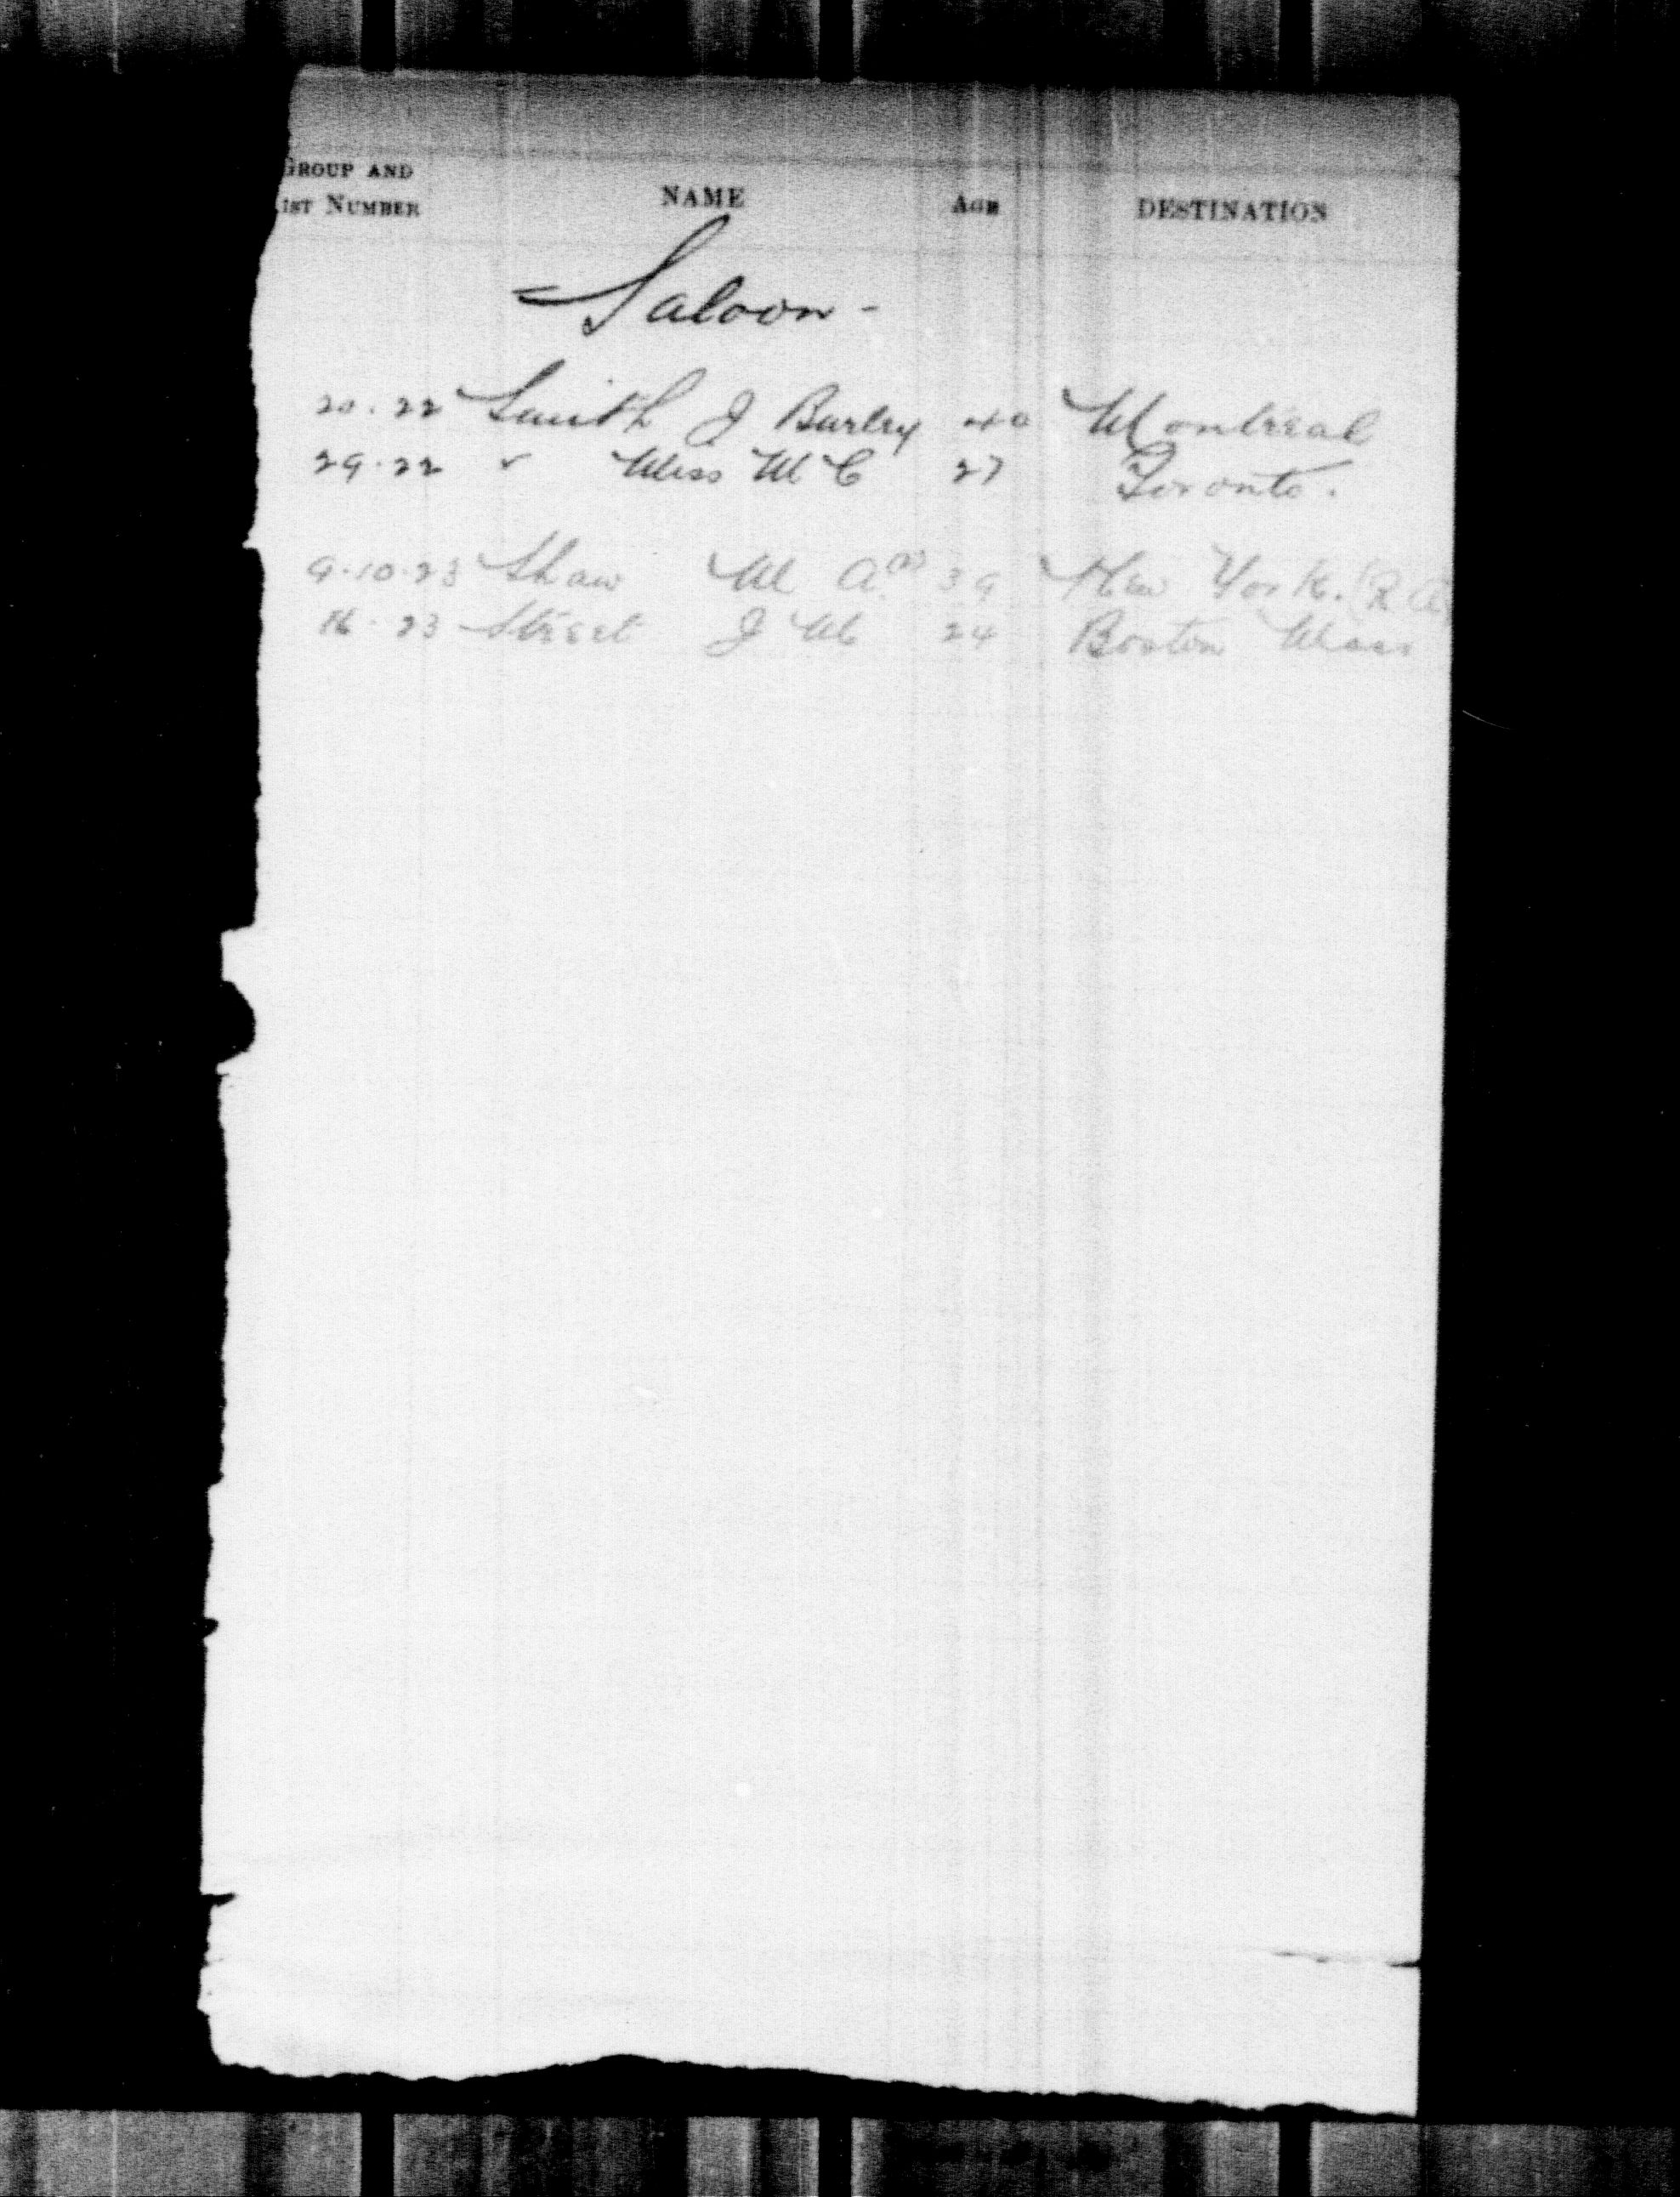 GROUP AND
IST NUMBER NAME AGE DESTINATION
Saloon -
20.22 Smith J Burley 40 Montreal
29.22 " Miss M C 27 Toronto.
9.10.23 Shaw M A. 39 New York. (R A
16.23 Street J M 24 Boston Mass